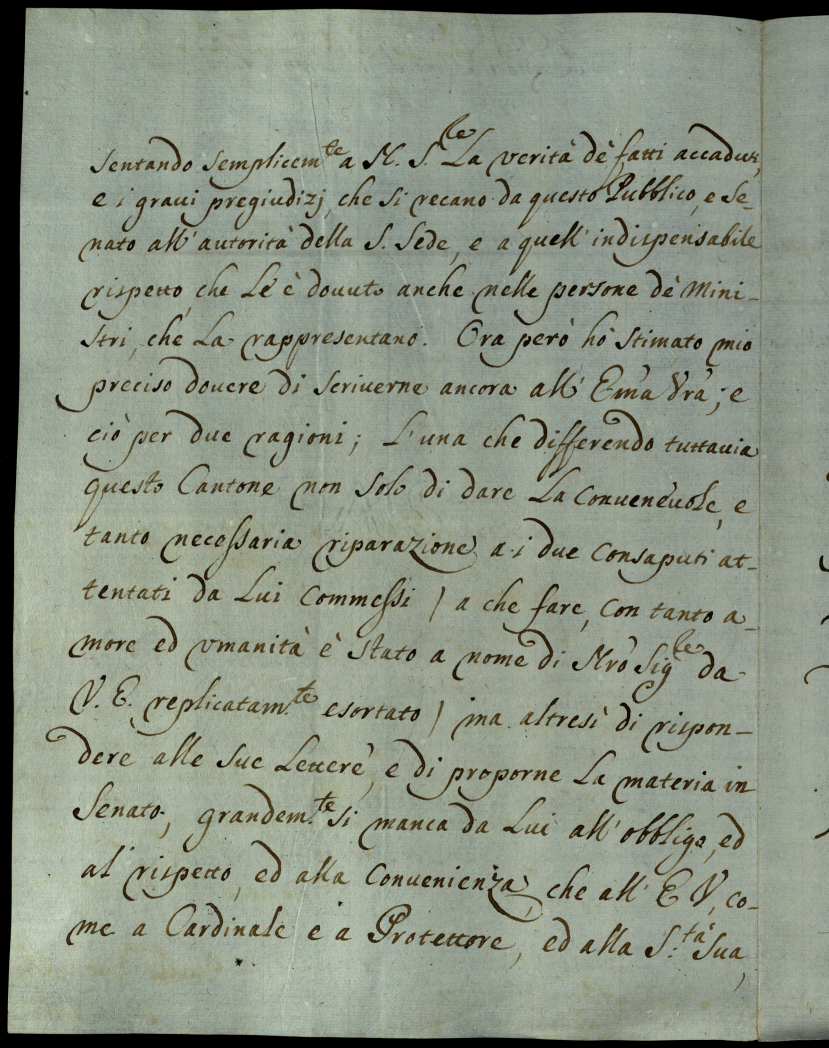 sentando semplicem.te a N. S.re La verità dè fatti accaduti,
e i graui pregiudizj, che si recano da questo Pubblico, e Se-
nato all' autorità della S. Sede, e a quell' indispensabile
rispetto, che Le è douuto anche nelle persone dè Mini-
stri, che La rappresentano. Ora però hò stimato mio
preciso douere di scriuerne ancora all' Em̃a Vrã; e
ciò per due ragioni; L'una che differendo tuttauia
questo Cantone non solo di dare La conueneuole, e
tanto necessaria riparazione a i due consaputi at-
tentati da Lui commessi ) a che fare, con tanto a-
more ed vmanità è stato a nome di Nrõ Sig.re da
V. E. replicatam.te esortato ) ma altresì di rispon-
dere alle sue Lettere, e di proporne La materia in
Senato, grandem.te si manca da Lui all' obbligo, ed
al rispetto, ed alla conuenienza, che all' E V, co-
me a Cardinale e a Protettore, ed alla S.tà Sua,